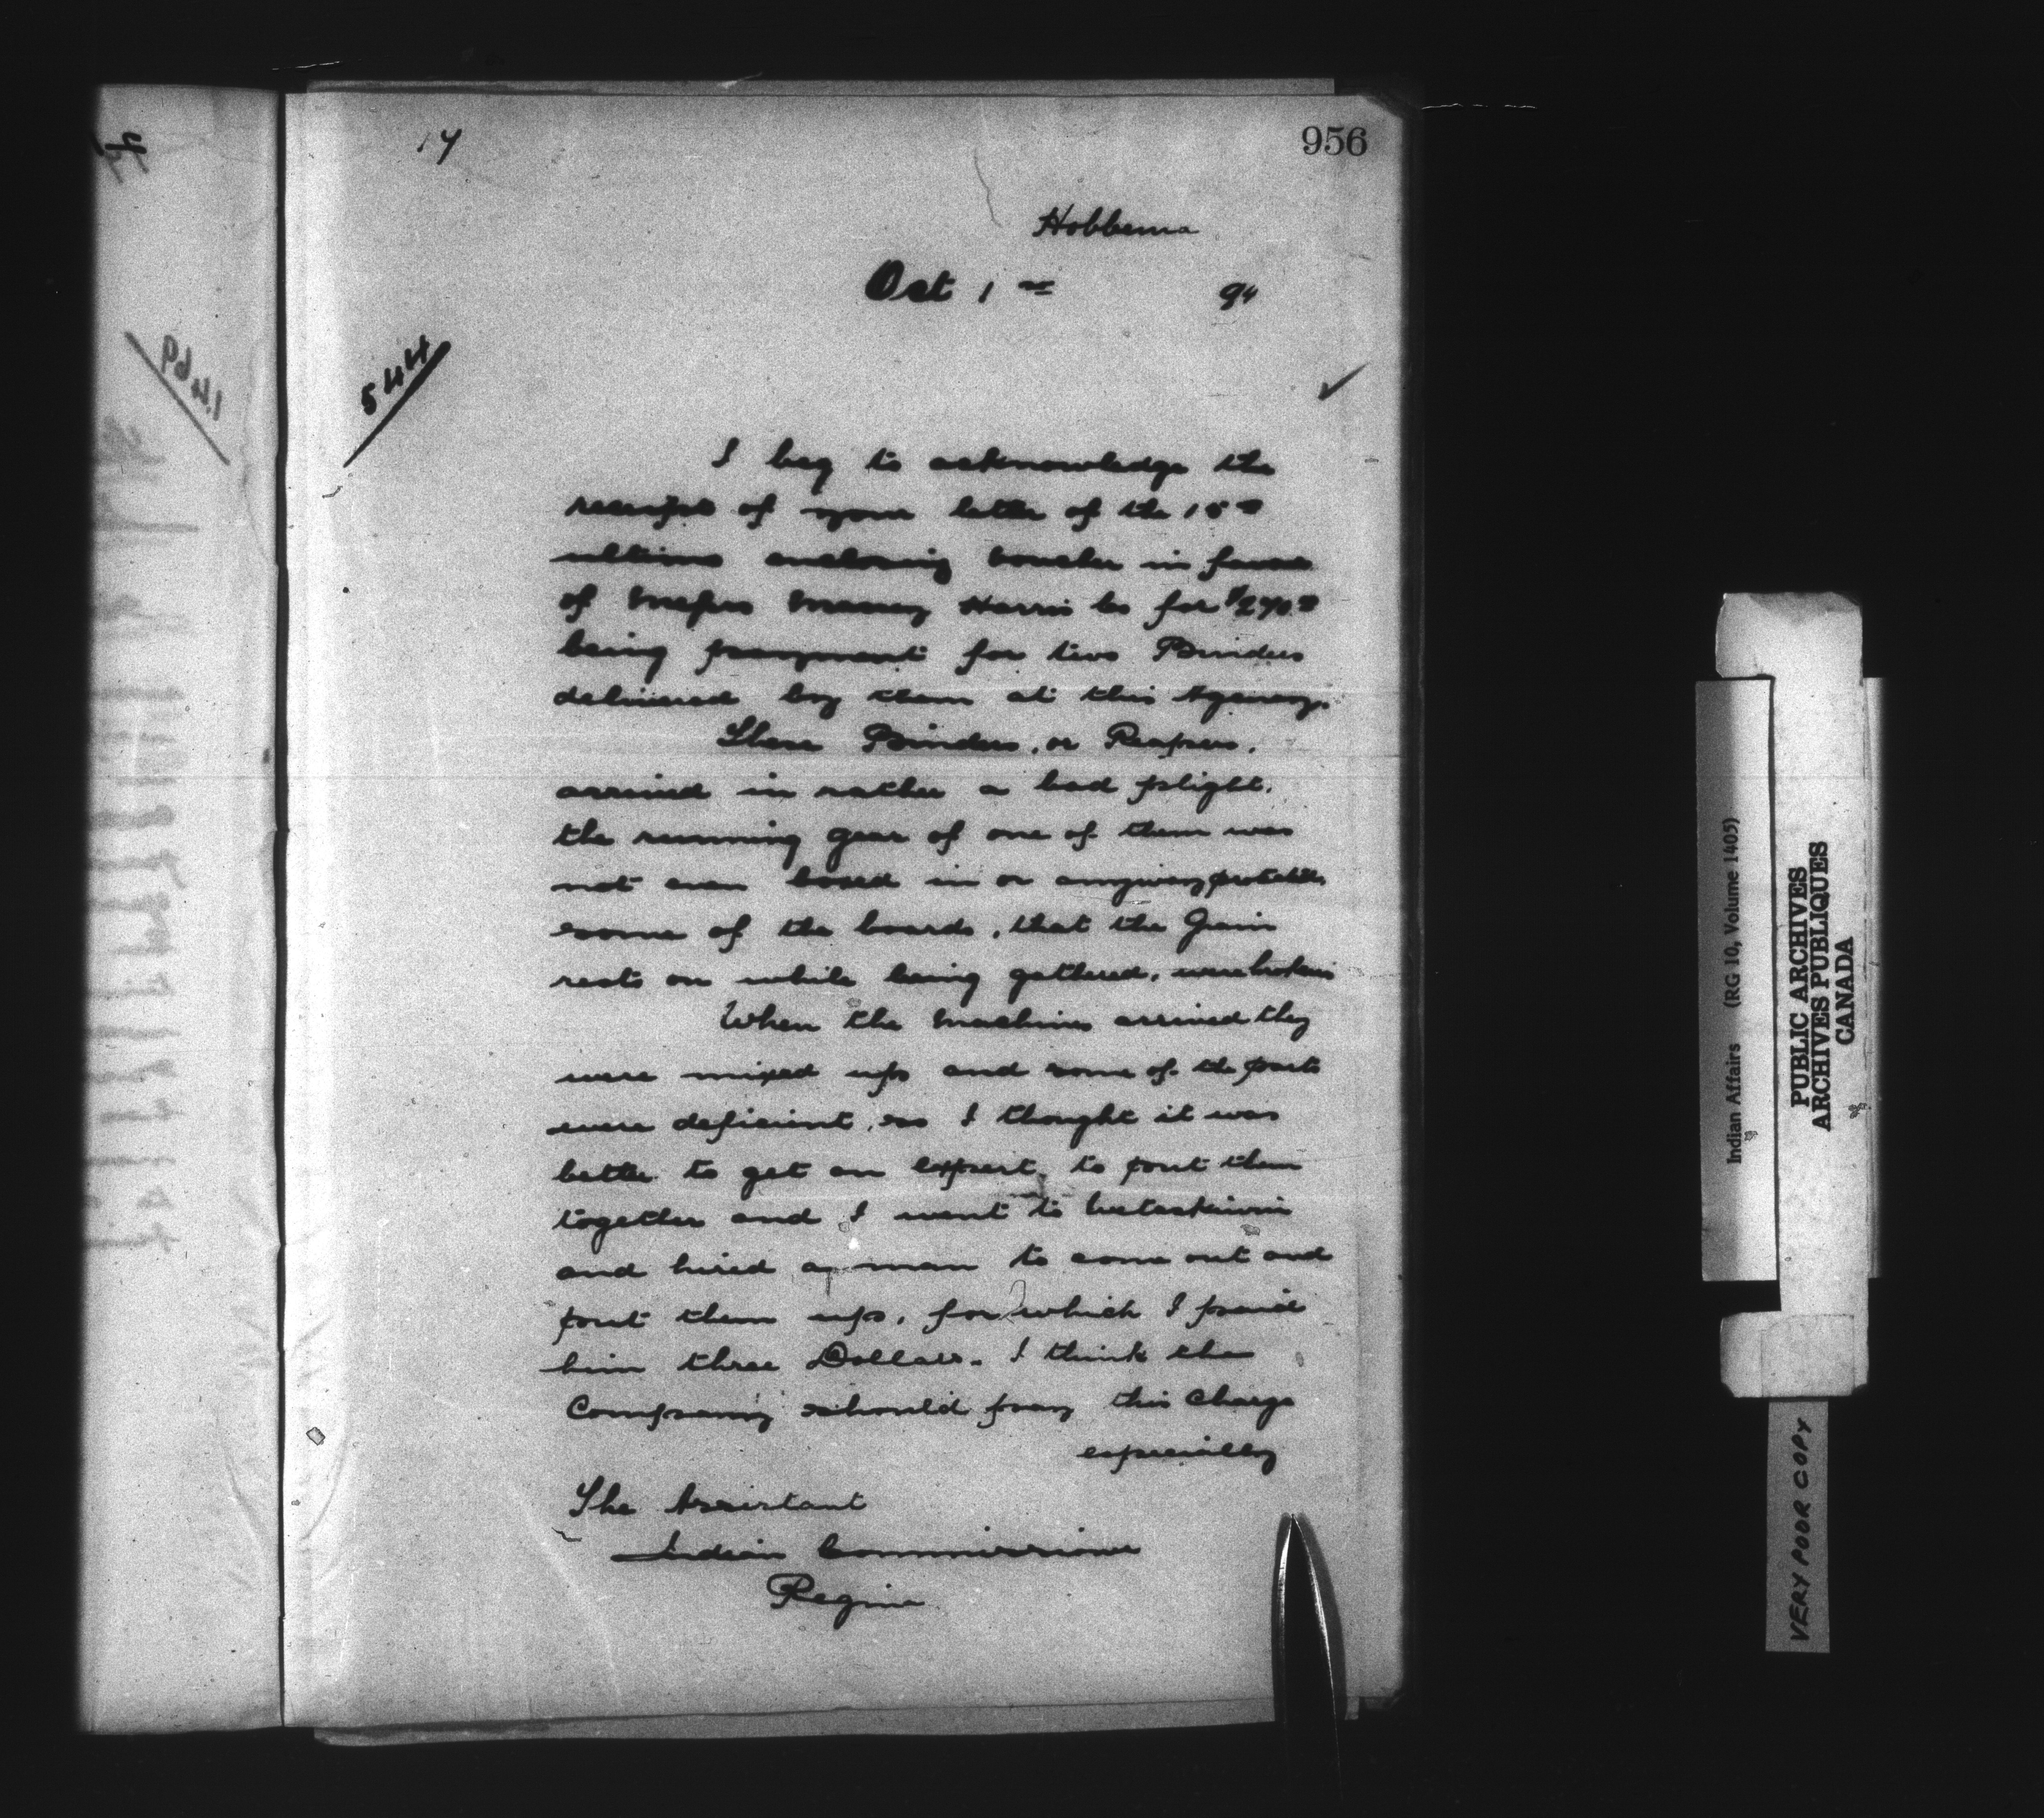 14
956
Hobbema
Oct 1st 94
544
I beg to acknowledge the
receipt of your letter of the 15th
ultimo enclosing voucher in favor
of Messrs Massey Harris Co for $270.00
being payment for two Binders
delivered by them at this Agency.
These Binders, or Reapers,
arrived in rather a bad plight,
the running gear of one of them was
not even boxed in or anyway protected,
some of the boards, that the Grain
rests on while being gathered, were broken
When the Machines arrived they
were mixed up and some of the parts
were deficient, so I thought it was
better to get an expert to put them
together and I went to Wetaskiwin
and hired a man to come out and
put them up, for which I paid
him three Dollars. I think the
Company should pay this Charge
especially
The Assistant
Indian Commissioner
Regina
1469
Indian Affairs (RG 10, Volume 1405)
PUBLIC ARCHIVES
ARCHIVES PUBLIQUES
CANADA
VERY POOR COPY